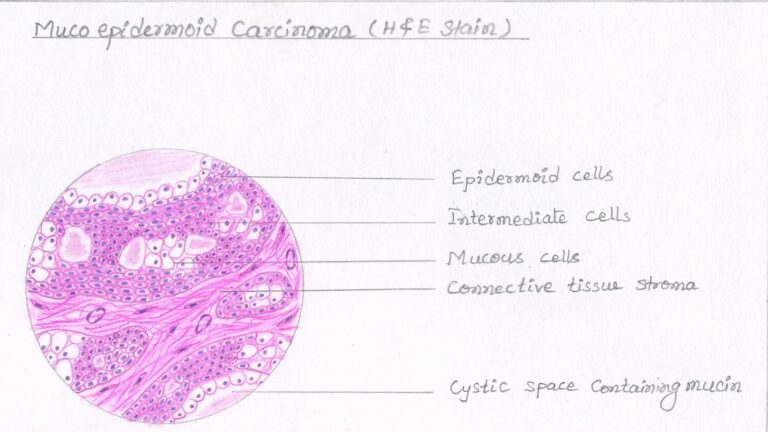 Muco epidermoid Carcinoma (H&E Stain)
Epidermoid cells
Intermediate cells
Mucous cells
Connective tissue stroma
Cystic space Containing mucin